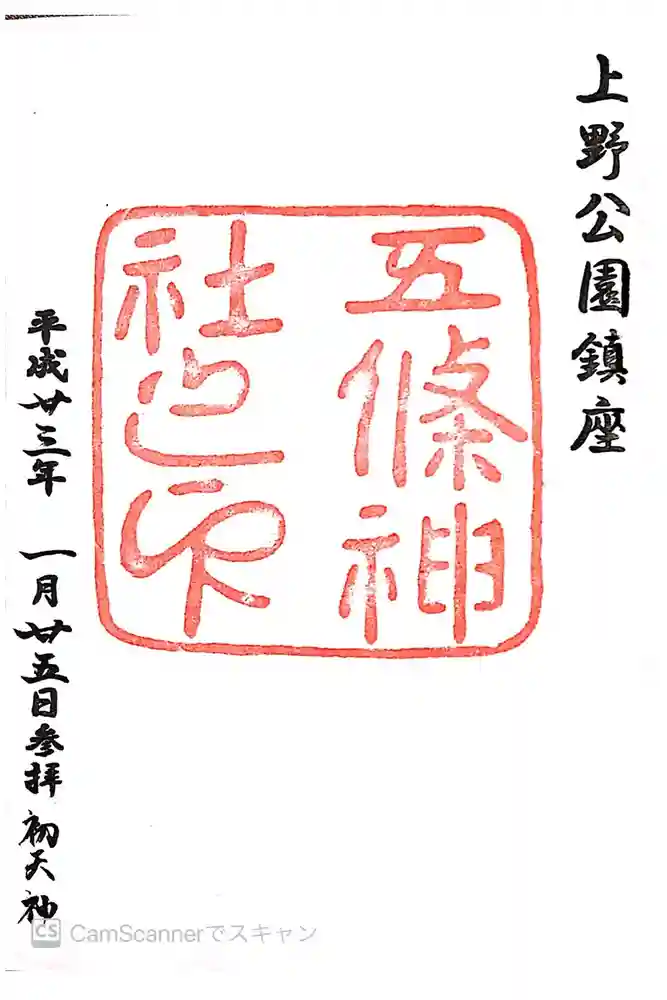 上野公園鎮座
五條神
社之印
平成廿三年 一月廿五日参拝 初天神
CS CamScannerでスキャン